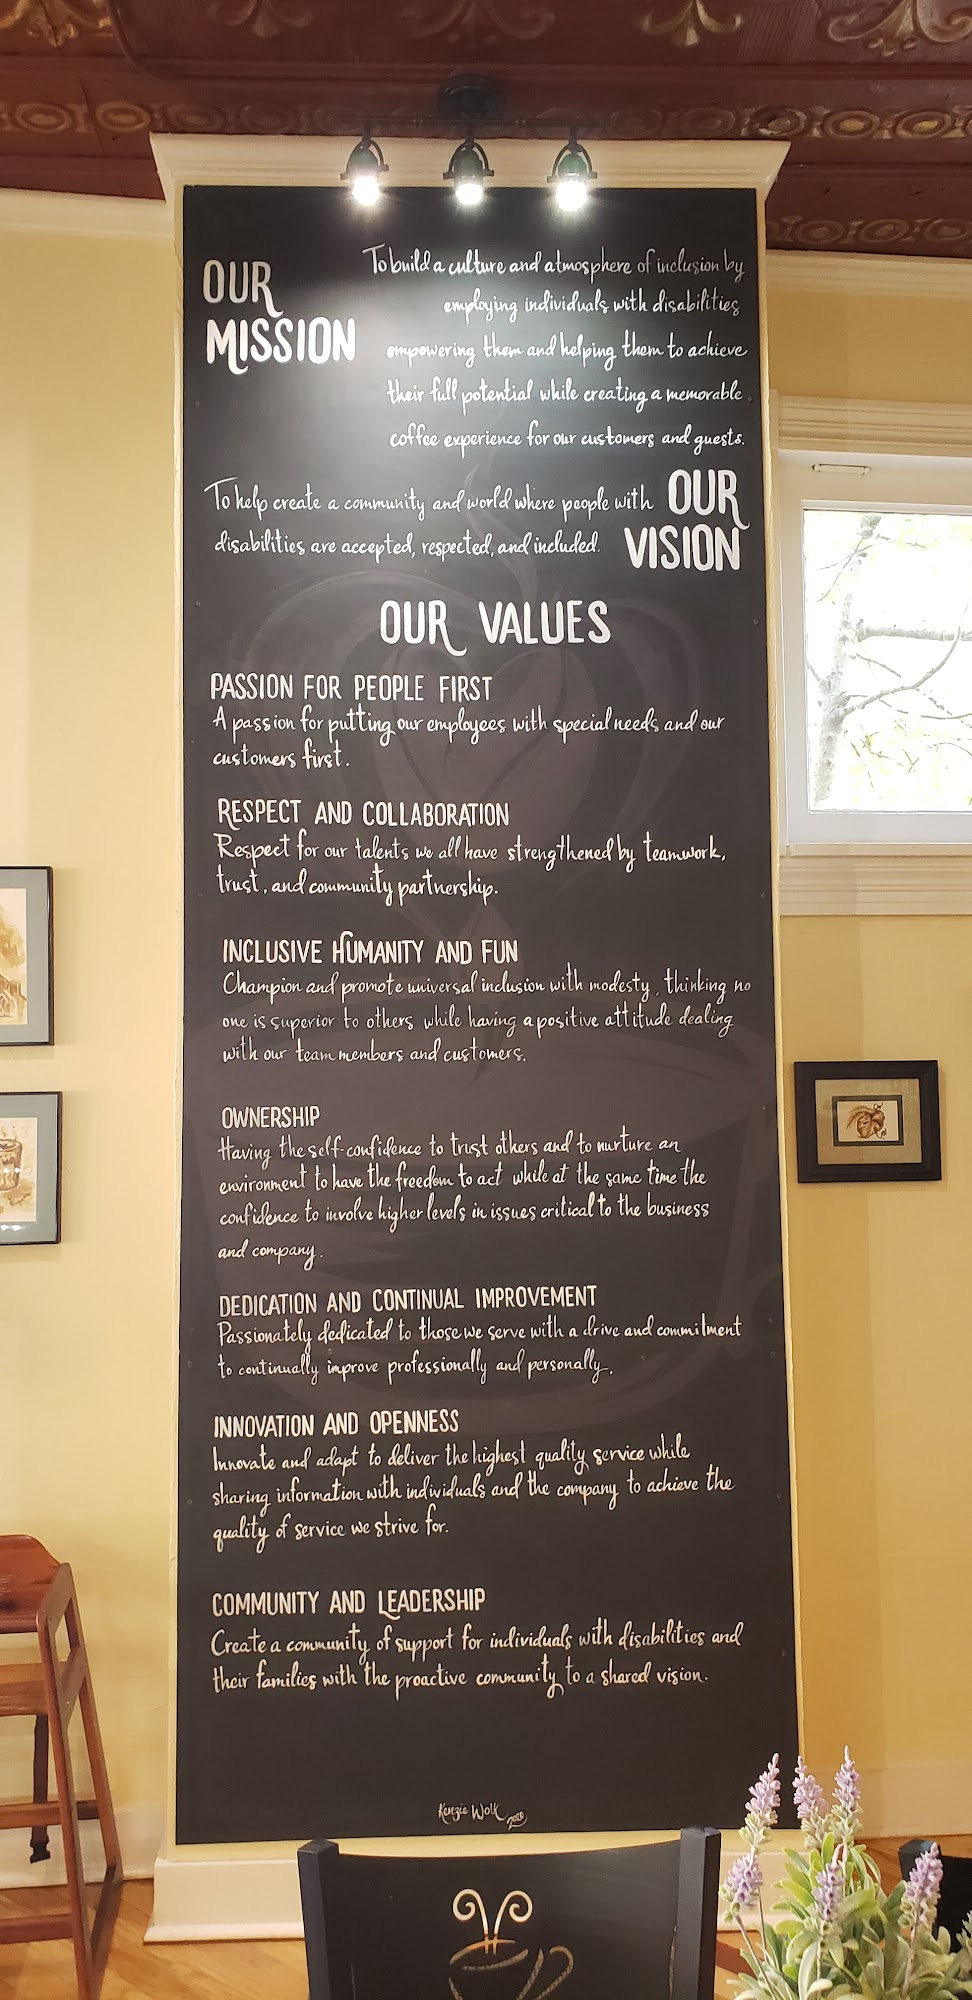 OUR
MISSION
To build a culture and atmosphere of inclusion by
employing individuals with disabilities
empowering them and helping them to achieve
their full potential while creating a memorable
coffee experience for our customers and guests.
To help create a community and world where people with
disabilities are accepted, respected, and included.
OUR
VISION
OUR VALUES
PASSION FOR PEOPLE FIRST
A passion for putting our employees with special needs and our
customers first.
RESPECT AND COLLABORATION
Respect for our talents we all have strengthened by teamwork,
trust, and community partnership.
INCLUSIVE HUMANITY AND FUN
Champion and promote universal inclusion with modesty, thinking no
one is superior to others while having a positive attitude dealing
with our team members and customers.
OWNERSHIP
Having the self-confidence to trust others and to nurture an
environment to have the freedom to act while at the same time the
confidence to involve higher levels in issues critical to the business
and company.
DEDICATION AND CONTINUAL IMPROVEMENT
Passionately dedicated to those we serve with a drive and commitment
to continually improve professionally and personally.
INNOVATION AND OPENNESS
Innovate and adapt to deliver the highest quality service while
sharing information with individuals and the company to achieve the
quality of service we strive for.
COMMUNITY AND LEADERSHIP
Create a community of support for individuals with disabilities and
their families with the proactive community to a shared vision.
Kenzie Wolk
2020